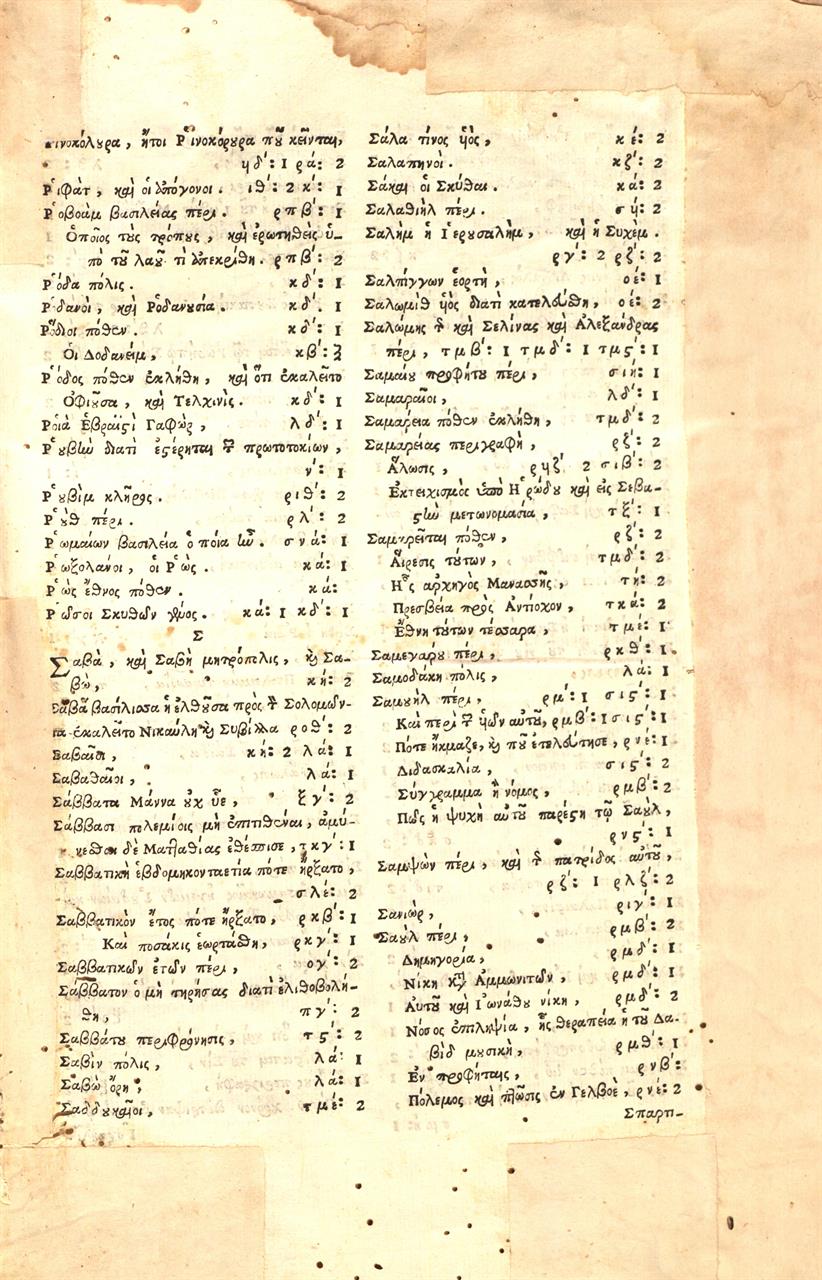 Ρ῾ινοκόλυρα, ἤτοι Ρ῾ινοκόρυρα ποῦ κεῖνται,
ϟδ΄: 1 ρά: 2
Ρ῾ιφὰτ, καὶ οἱ ἀπόγονοι. ιθ΄: 2 κ΄: 1
Ρ῾οβοὰμ βασιλείας πέρι. ρπβ΄: 1
Ὁποῖος τοὺς τρόπους, καὶ ἐρωτηθεὶς ὑ-
πὸ τοῦ λαοῦ τὶ ἀπεκρίθη. ρπβ΄: 2
Ρ῾όδα πόλις. κδ΄: 1
Ρ῾δανοὶ, καὶ Ροδανουσία. κδ΄. 1
Ρόδιοι πόθεν. κδ΄: 1
Οἱ Δοδανεὶμ, κβ΄: 2
Ρ῾όδος πόθεν ἐκλήθη, καὶ ὅτι ἐκαλεῖτο
Ὀφιοῦσα, καὶ Τελχινὶς. κδ΄: 1
Ροιὰ Ἑβραϊστὶ Γαφὼρ, λδ΄: 1
Ρ῾ουβὶμ διατὶ ἐστέρηται τῶν πρωτοτοκίων,
ν΄: 1
Ρ῾ουβὶμ κλῆρος. ριθ΄: 2
Ρ῾οὺθ πέρι. ρλ΄: 2
Ρ῾ωμαίων βασιλεία ὁποία ἦν. σνά: 1
Ρ῾ωξολάνοι, οἱ Ρ῾ὼς. κά: 1
Ρ῾ὼς ἔθνος πόθεν. κά:
Ρ῾ῶσοι Σκυθῶν γένος. κά: 1 κδ΄: 1
Σ
Σαβὰ, καὶ Σαβὴ μητρόπολις, καὶ Σα-
βὼ, κή: 2
Σαβᾶ βασίλισσα ἡ ἐλθοῦσα πρὸς τὸν Σολομῶν-
τα ἐκαλεῖτο Νικαύλη καὶ Συβίλλα ροθ΄: 2
Σαβαῖοι, κή: 2 λά: 1
Σαβαθαῖοι, λά: 1
Σάββατα Μάννα οὐχ ὗε, ξγ΄: 2
Σάββασι πολεμίοις μὴ ἐπιτιθέναι, ἀμύ-
νεσθαι δὲ Ματταθίας ἐθέσπισε, τκγ΄: 1
Σαββατικὴ ἑβδομηκονταετία πότε ἤρξατο,
σλέ: 2
Σαββατικὸν ἔτος πότε ἤρξατο, ρκβ΄: 1
Καὶ ποσάκις ἑωρτάσθη, ρκγ΄: 1
Σαββατικῶν ἐτῶν πέρι, ογ΄: 2
Σάββατον ὁ μὴ τηρήσας διατὶ ἐλιθοβολή-
θη, πγ΄: 2
Σαββάτου περιφρόνησις, τϛ΄: 2
Σαβὶν πόλις, λά: 1
Σαβὼ ὄρη, λά: 1
Σαδδουκαῖοι, τμέ: 2
Σάλα τίνος υἱὸς, κέ: 2
Σαλαπηνοὶ. κζ΄: 2
Σάκαι οἱ Σκύθαι. κά: 2
Σαλαθιὴλ πέρι. σή: 2
Σαλὴμ ἡ Ἱερουσαλὴμ, καὶ ἡ Συχὲμ.
ργ΄: 2 ρζ΄: 2
Σαλπίγγων ἑορτὴ, οέ: 1
Σαλωμὶθ υἱὸς διατὶ κατελεύσθη, οέ: 2
Σαλώμης τῆς καὶ Σελίνας καὶ Ἀλεξάνδρας
πέρι, τμβ΄: 1 τμδ΄: 1 τμϛ΄: 1
Σαμαίου προφήτου πέρι, σιή: 1
Σαμαραῖοι, λδ΄: 1
Σαμάρεια πόθεν ἐκλήθη, τμδ΄: 2
Σαμαρείας περιγραφὴ, ρζ΄: 2
Ἅλωσις, ρϟζ΄ 2 σιβ΄: 2
Ἐκτειχισμὸς ὑπὸ Ἡρώδου καὶ εἰς Σεβα-
στὴν μετωνομασία, τξ΄: 1
Σαμαρεῖται πόθεν, ρζ΄: 2
Αἵρεσις τούτων, τμδ΄: 2
Ἧς ἀρχηγὸς Μανασσῆς, τή: 2
Πρεσβεία πρὸς Ἀντίοχον, τκά: 2
Ἔθνη τούτων τέσσαρα, τμέ: 1
Σαμεγάρου πέρι, ρκθ΄: 1
Σαμοδάκη πόλις, λά: 1
Σαμουὴλ πέρι, ρμ΄: 1 σιϛ΄: 1
Καὶ περὶ τῶν υἱῶν αὐτοῦ, ρμβ΄: 1 σιϛ΄: 1
Πότε ἤκμαζε, καὶ ποῦ ἐτελεύτησε, ρνέ: 1
Διδασκαλία, σιϛ΄: 2
Σύγγραμμα ἢ νόμος, ρμβ΄: 2
Πῶς ἡ ψυχὴ αὐτοῦ παρέστη τῷ Σαοὺλ,
ρνϛ΄: 1
Σαμψὼν πέρι, καὶ τῆς πατρίδος αὐτοῦ,
ρζ΄: 1 ρλζ΄: 2
Σανιὼρ, ριγ΄: 1
Σαοὺλ πέρι, ρμβ΄: 2
Δημηγορία, ρμδ΄: 1
Νίκη κατὰ Ἀμμωνιτῶν, ρμδ΄: 1
Αὐτοῦ καὶ Ἰωνάθου νίκη, ρμδ΄: 2
Νόσος ἐπιληψία, ἧς θεραπεία ἡ τοῦ Δα-
βὶδ μουσικὴ, ρμθ΄: 1
Ἐν προφήταις, ρνβ΄:
Πόλεμος καὶ πτῶσις ἐν Γελβοὲ, ρνέ: 2
Σπαρτι-